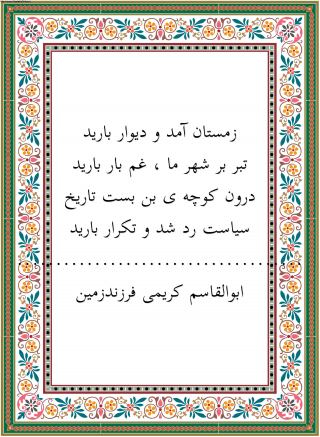 زمستان آمد و دیوار بارید
تبر بر شهر ما ، غم بار بارید
درون کوچه ی بن بست تاریخ
سیاست رد شد و تکرار بارید
............................
ابوالقاسم کریمی فرزندزمین